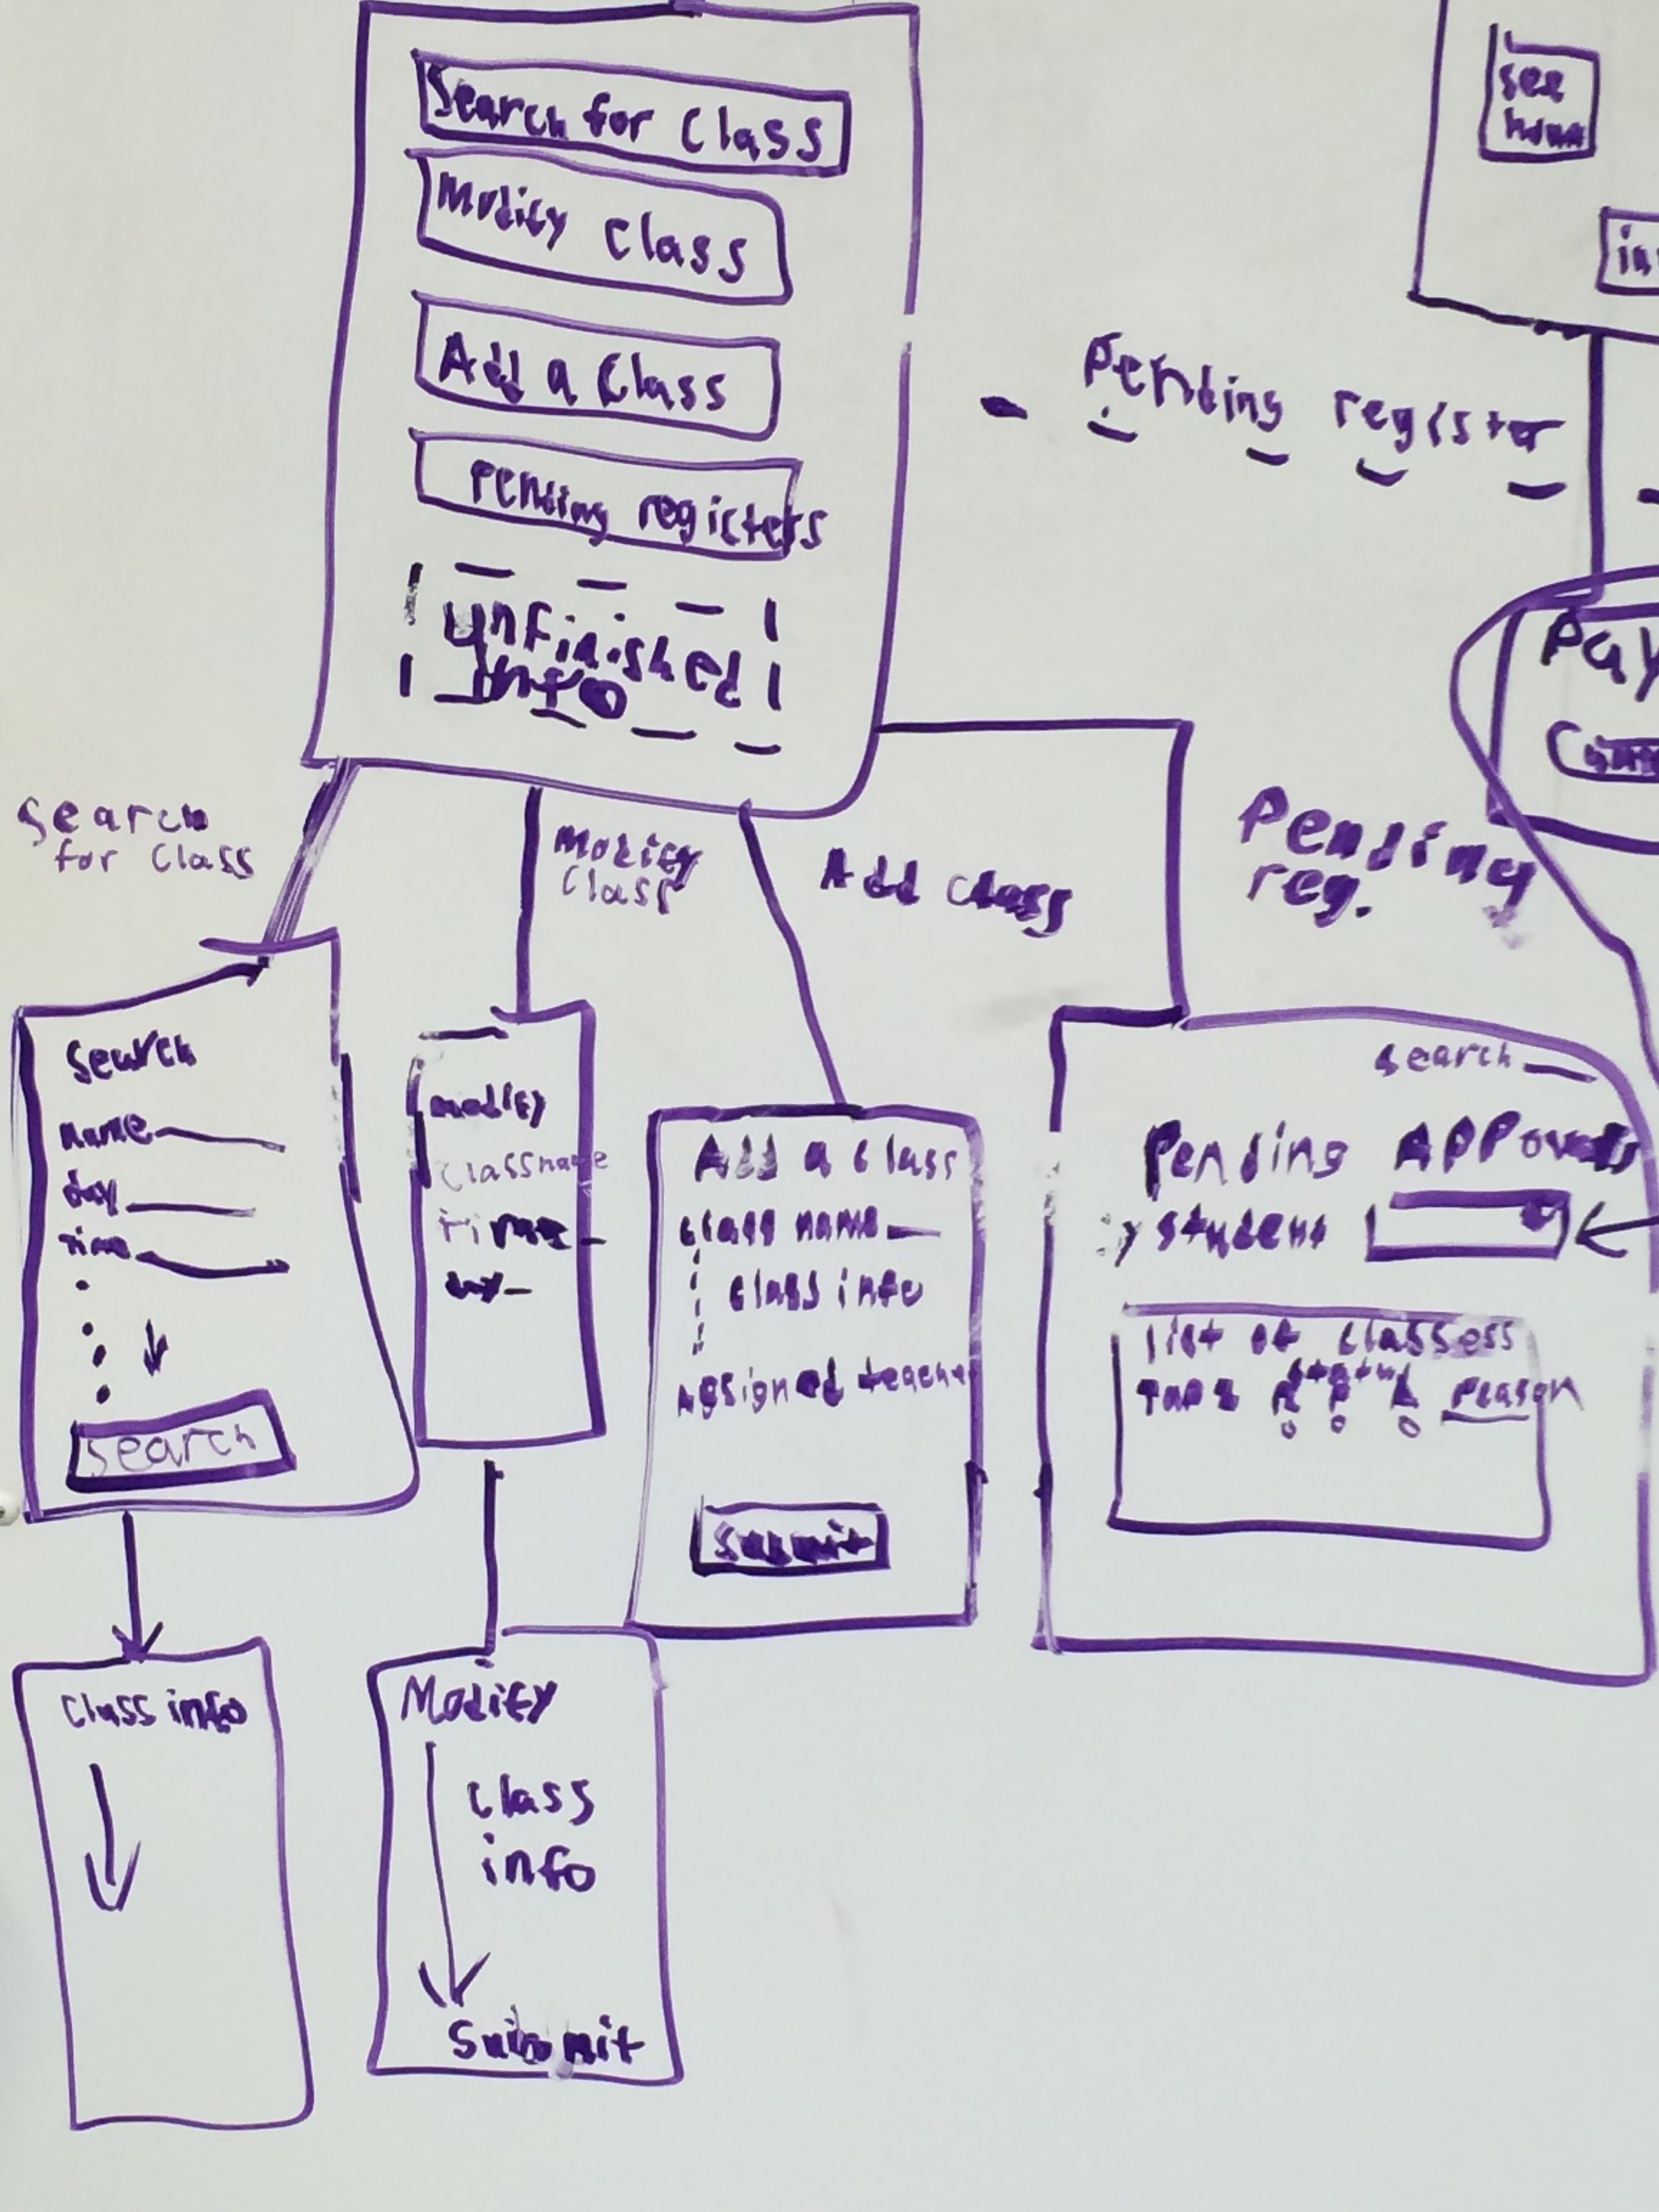 Search for Class
Modify Class
Add a Class
Pending registers
unfinished
info
see
Pending register
Pay
Search
for Class
Modify
Class
Add Class
Pending
reg.
Search
name
day
Time
Search
modify
Classname
Time
day
Add a Class
Class name
Class info
Assigned teacher
Submit
search
Pending APPovals
by student
list of Classess
status
reason
Class info
Modify
Class
info
Submit